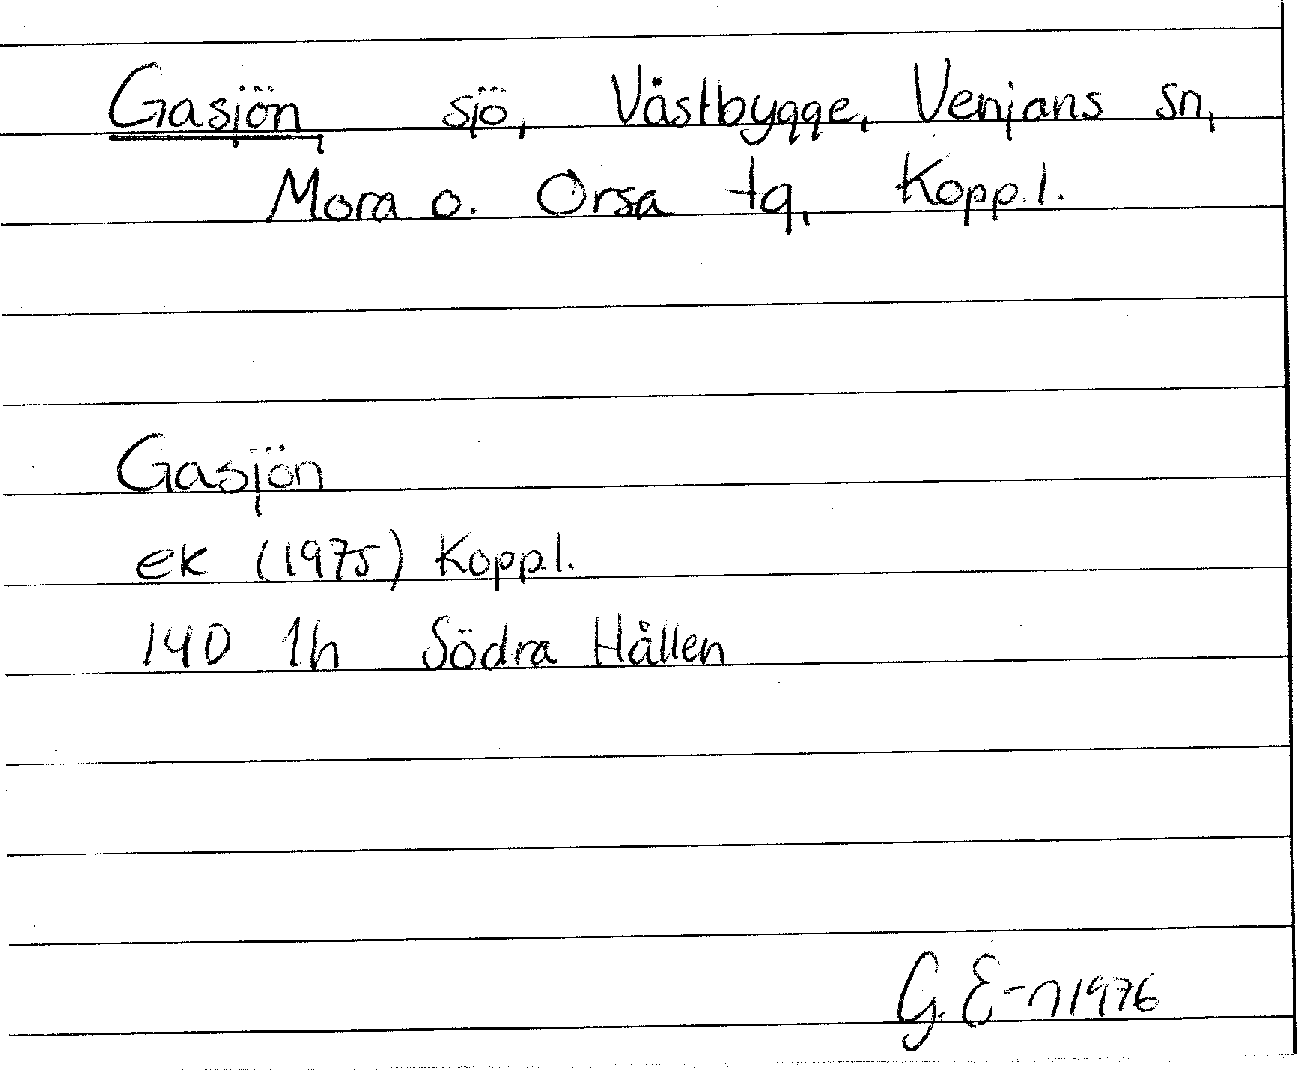 Gasjön, sjö, Våstbygge, Venjans sn,
Mora o. Orsa tg, Kopp.l.
Gasjön
ek (1975) Koppl.
14D 1h Södra Hållen
G. E-n 1976